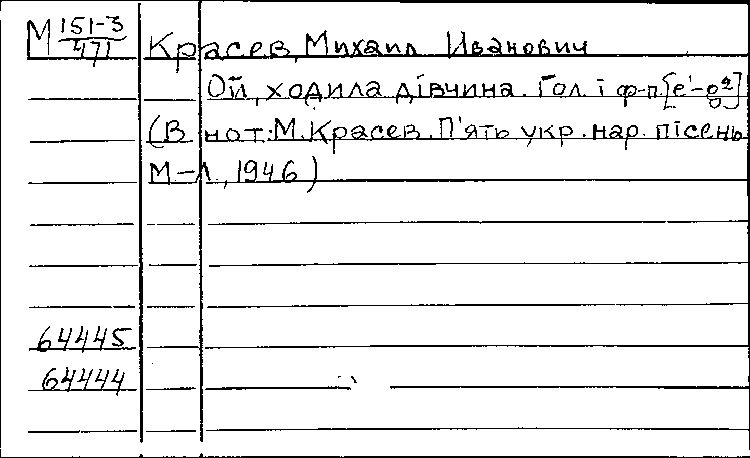 М 151-3/471 Красев, Михаил Иванович
Ой, ходила дівчина. Гол. і ф-п. [e¹-g²]
(В нот.: М. Красев. П'ять укр. нар. пісень
М-Л, 1946)
64445
64444